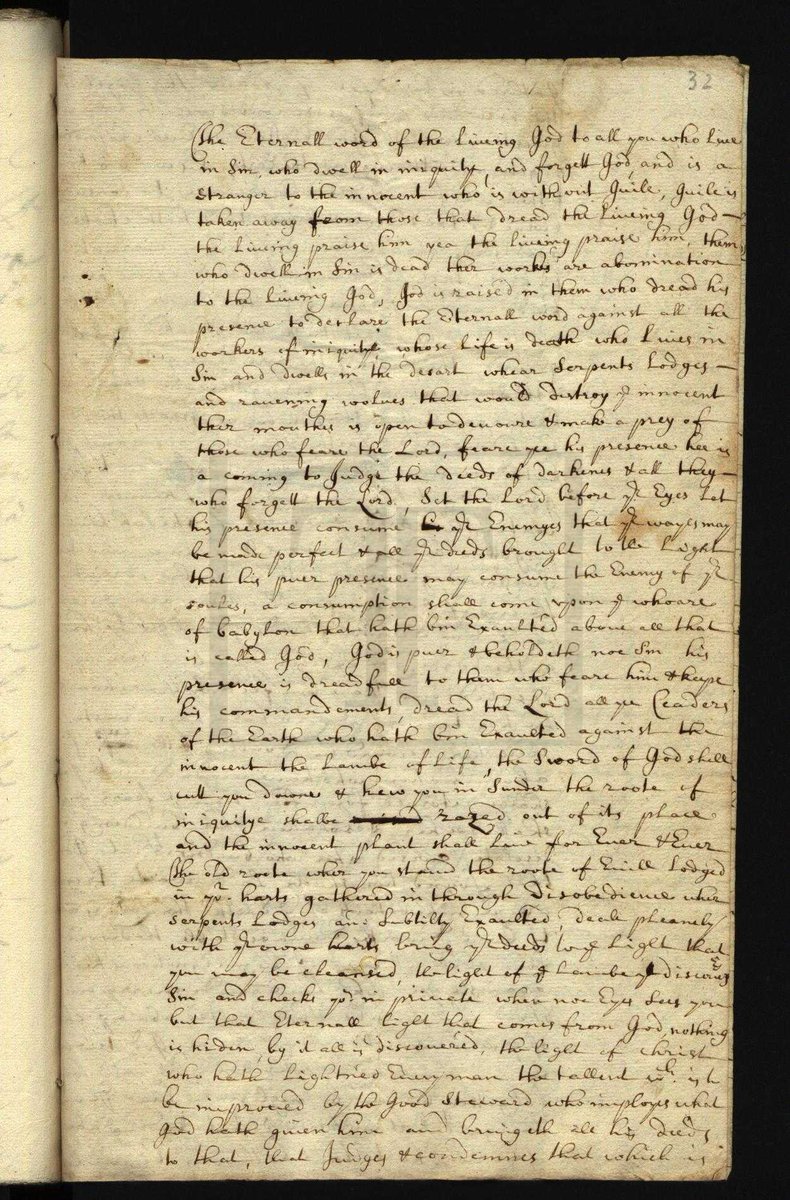 32
The Eternall word of the Liveing God to all you who Live
in Sin, who dwell in iniquity, and forgett God, and is a
Stranger to the innocent who is without Guile, Guile is
taken away from those that dread the Liveing God
the Liveing praise him yea the liveing praise him, them
who dwell in Sin is dead ther workes are abomination
to the Liveing God, God is raised in them who dread his
presence to declare the Eternall word against all the
workers of iniquitye whose Life is death who Lives in
Sin and dwells in the desart whear Serpents Lodges
and ravening wolves that would distroy ye innocent
ther mouthes is open to devoure & make a prey of
those who feare the Lord, feare ye his presence hee is
a coming to Judge the deeds of darkenes & all they
who forgett the Lord, Set the Lord before yr Eyes Let
his presence consume yr Enemyes that yr wayes may
be made perfect & all yr deeds brought to the Light
that his puer presence may consume the Enemy of yr
soules, a consumption shall come upon ye who are
of babylon that hath bin Exaulted above all that
is called God, God is puer & beholdeth noe Sin his
presence is dreadfull to them who feare him & keepe
his commandements, dread the Lord all ye Leaders
of the Earth who hath bin Exaulted against the
innocent the Lambe of Life, the Sword of God shall
cutt you downe & hew you in Sunder the roote of
iniquitye shalbe razed out of its place
and the innocent plant shall Live for Ever & Ever
The old roote wher you stand the roote of Evill Lodged
in yor harts gathered in through Disobedience wher
Serpents Lodges and Subtilty Exaulted, deale pleanely
with yr owne harts bring yr deeds to ye Light that
you may be cleansed, the light of ye Lambe yt discovers
Sin and checks you in private when noe Eyes Sees you
but that Eternall light that comes from God, nothing
is hiden, by it all is discovered, the light of Christ
who hath Lightned Every man the tallent wch is to
be improved by the Good Steward who imployes what
God hath given him and bringeth all his deeds
to that, that Judges & condemnes that which is